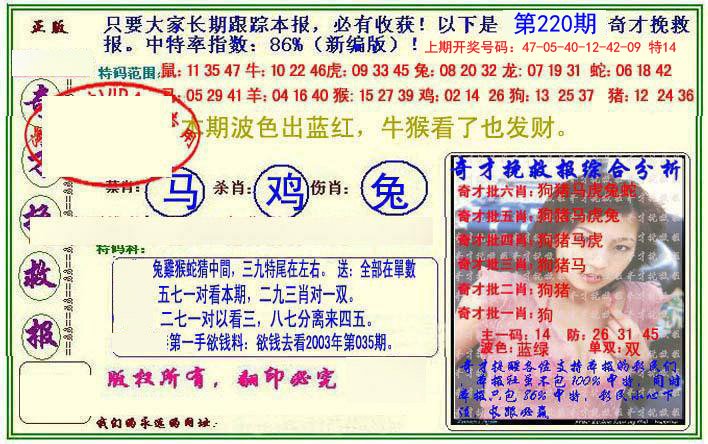 正版
只要大家长期跟踪本报，必有收获！以下是 第220期 奇才挽救
报。中特率指数：86%（新编版）！上期开奖号码：47-05-40-12-42-09 特14
特码范围:
鼠: 11 35 47 牛: 10 22 46虎: 09 33 45 兔: 08 20 32 龙: 07 19 31 蛇: 06 18 42
05 29 41 羊: 04 16 40 猴: 15 27 39 鸡: 02 14 26 狗: 13 25 37 猪: 12 24 36
本期波色出蓝红，牛猴看了也发财。
肖: 马 杀肖: 鸡 伤肖: 兔
特码料:
兔雞猴蛇猜中間，三九特尾在左右。送：全部在單數
五七一对看本期，二九三肖对一双。
二七一对以看三，八七分离来四五。
第一手欲钱料：欲钱去看2003年第035期。
版权所有，翻印必究
我们的永远的网址:
奇
救
报
奇才挽救报综合分析
奇才批六肖: 狗猪马虎兔蛇
奇才批五肖: 狗猪马虎兔
奇才批四肖: 狗猪马虎
奇才批三肖: 狗猪马
奇才批二肖: 狗猪
奇才批一肖: 狗
主一码: 14 防: 26 31 45
波色: 蓝绿 单双: 双
奇才提醒各位支持本报的彩民们
，本报虽不包100%中特，同时
本报只包86%中特，彩民小心下
注，长跟必赢